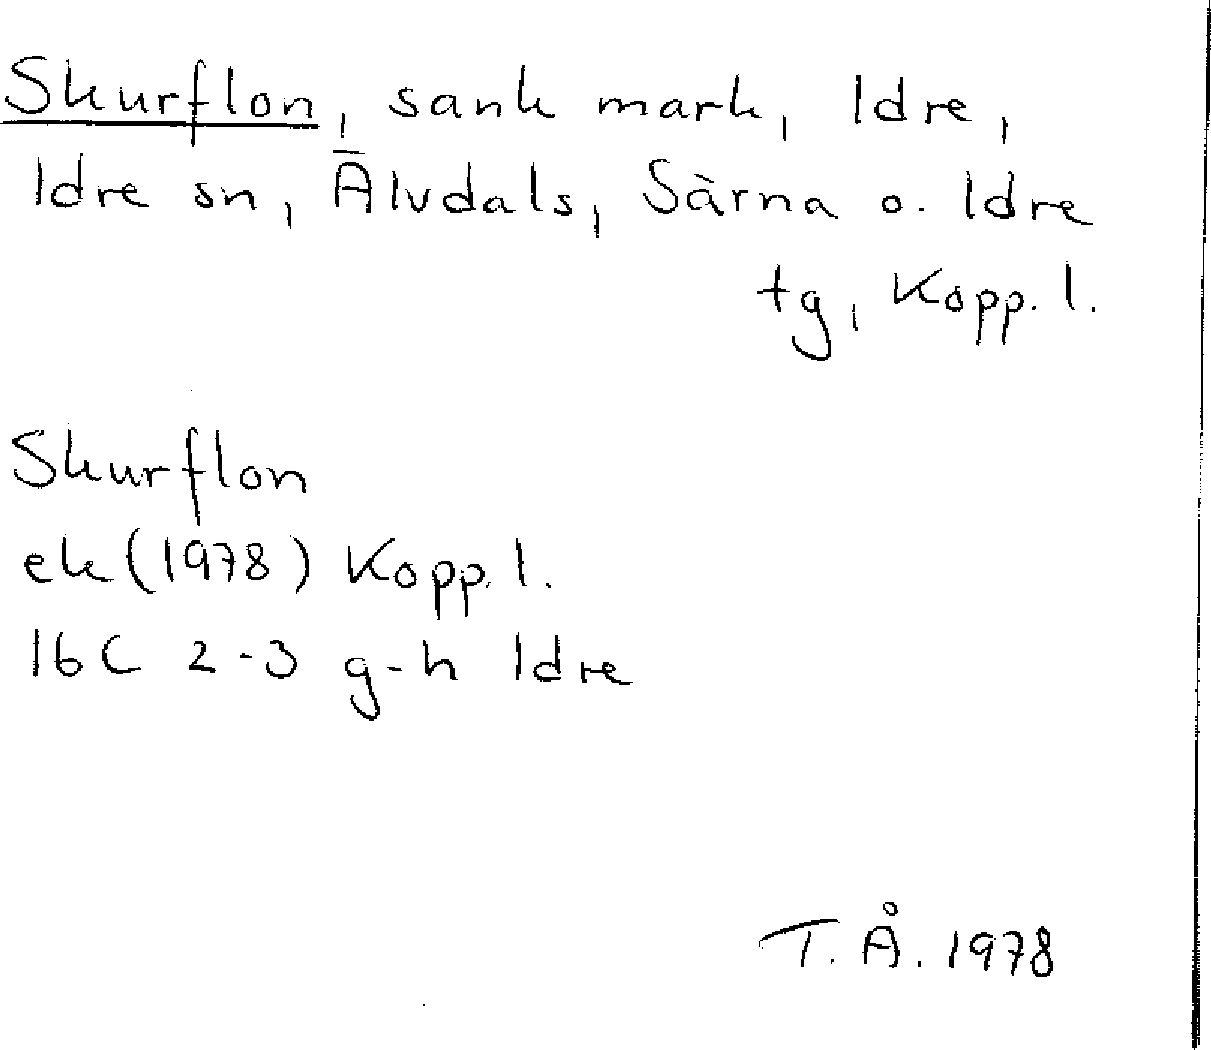 Skurflon, sank mark, Idre,
Idre sn, Älvdals, Särna o. Idre
tg, Kopp. l.
Skurflon
ek (1978) Kopp. l.
16C 2-3 g-h Idre
T. Å. 1978